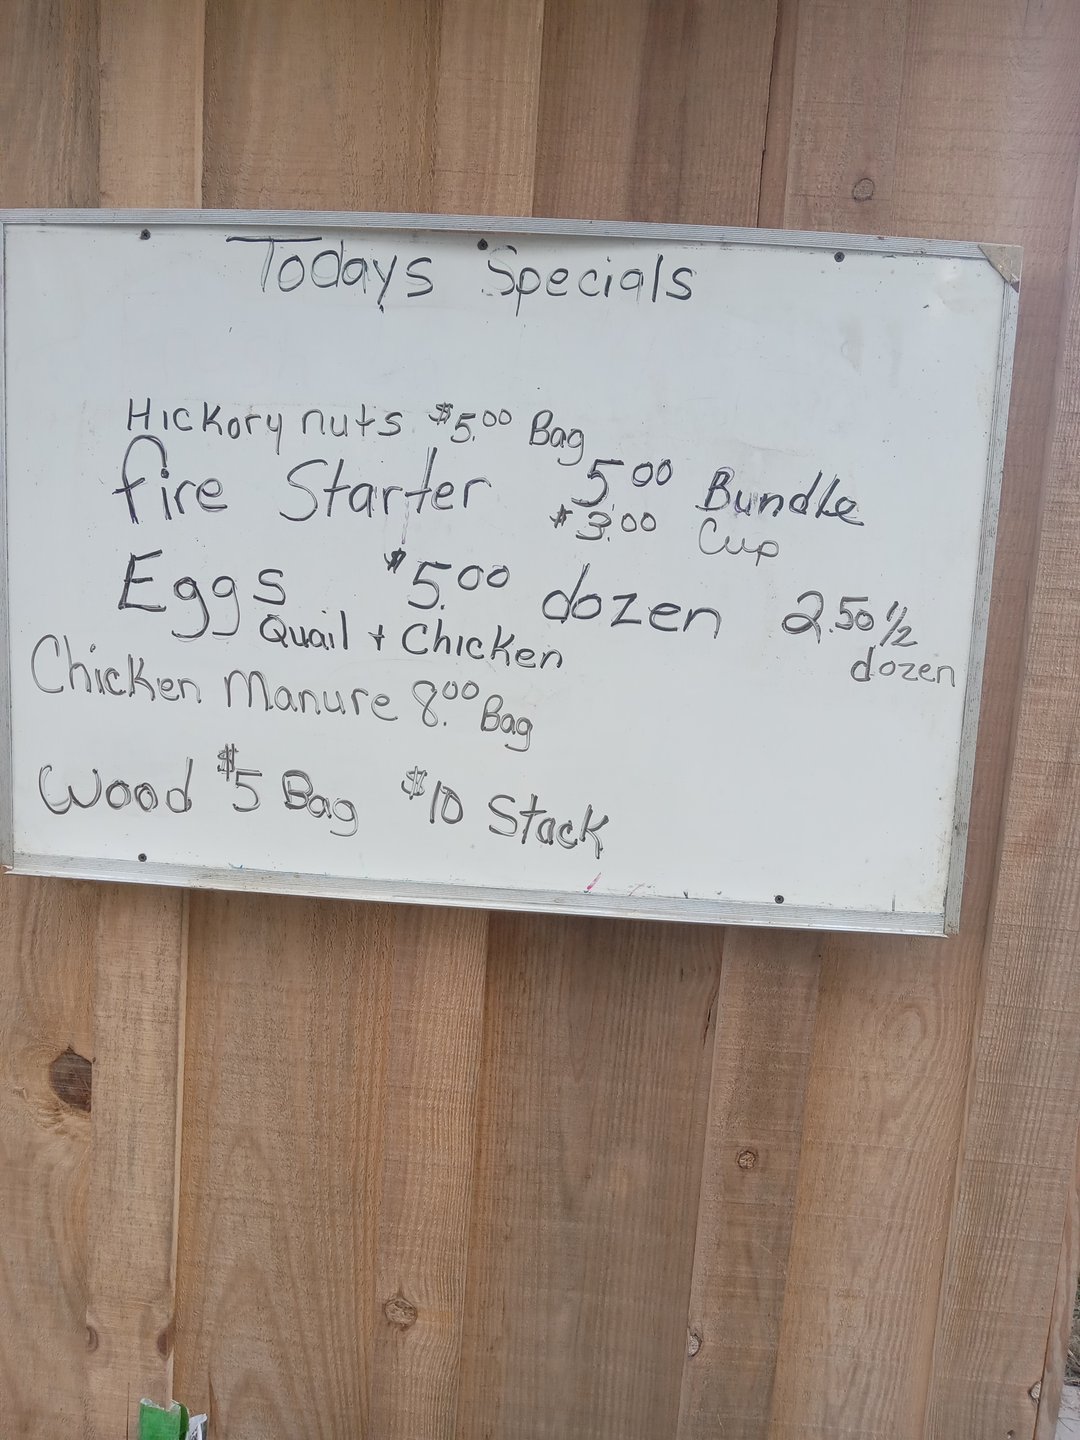 Todays Specials
Hickory nuts $5.00 Bag
fire Starter 5.00 Bundle
$3.00 Cup
Eggs $5.00 dozen 2.50 1/2
dozen
Quail + Chicken
Chicken Manure 8.00 Bag
Wood $5 Bag $10 Stack